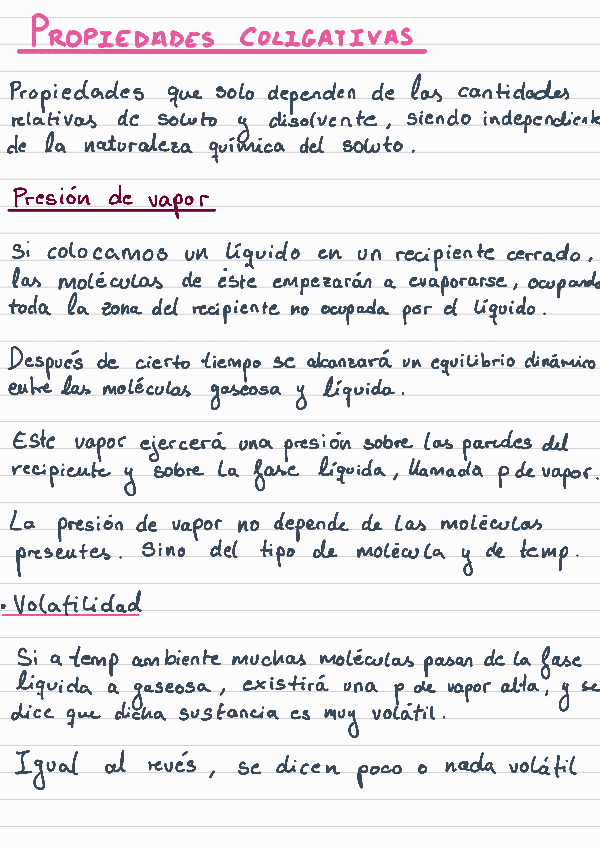 PROPIEDADES COLIGATIVAS
Propiedades que solo dependen de las cantidades
relativas de soluto y disolvente, siendo independient
de la naturaleza química del soluto.
Presión de vapor
Si colocamos un líquido en un recipiente cerrado,
las moléculas de éste empezarán a evaporarse, ocupando
toda la zona del recipiente no ocupada por el líquido.
Después de cierto tiempo se alcanzará un equilibrio dinámico
entre las moléculas gaseosa y líquida.
Este vapor ejercerá una presión sobre las paredes del
recipiente y sobre la fase líquida, llamada p de vapor.
La presión de vapor no depende de las moléculas
presentes. Sino del tipo de molécula y de temp.
· Volatilidad
Si a temp ambiente muchas moléculas pasan de la fase
líquida a gaseosa, existirá una p de vapor alta, y se
dice que dicha sustancia es muy volátil.
Igual al revés, se dicen poco o nada volátil